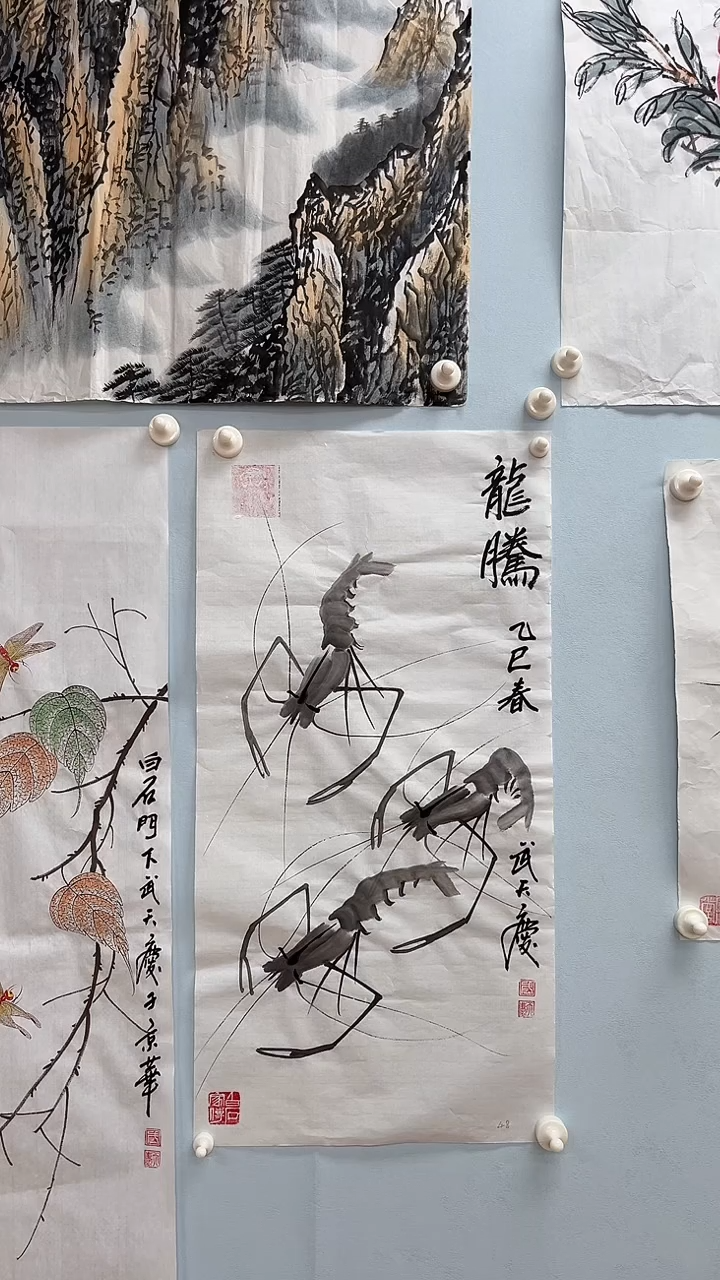 龍騰
乙巳春
武天慶
白石門下武天慶于京華
48